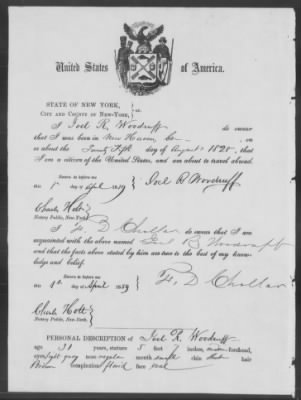 United States of America.
STATE OF NEW YORK,
CITY AND COUNTY OF NEW-YORK, } ss.
I Joel R. Woodruff do swear
that I was born in New Haven, Co on
or about the Twenty Fifth day of August 1828, that
I am a citizen of the United States, and am about to travel abroad.
Sworn to before me
this 1st day of April 1859 } Joel R Woodruff
Charles Nott
Notary Public, New-York.
I F. D do swear that I am
acquainted with the above named Joel R Woodruff
and that the facts above stated by him are true to the best of my know-
ledge and belief.
Sworn to before me
this 1st day of April 1859 } F. D
Charles Nott
Notary Public, New York.
PERSONAL DESCRIPTION of Joel R. Woodruff
age 31 years, stature 5 feet 7 inches, forehead,
eyes light gray nose regular mouth small chin hair
Brown complexion florid face oval